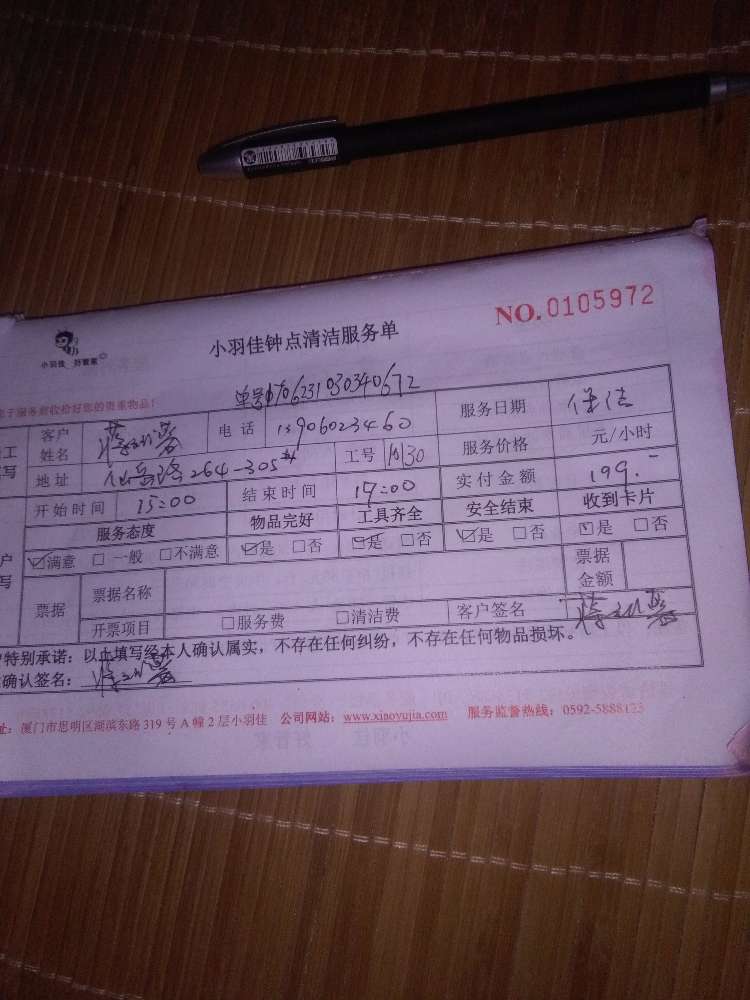 小羽佳 好管家
小羽佳钟点清洁服务单
NO.0105972
服务前收拾好您的贵重物品!
客户姓名 电话 13906023460 服务日期 保洁
地址 仙岳路264-305 工号 服务价格 元/小时
开始时间 15:00 结束时间 17:00 实付金额 199.-
服务态度 物品完好 工具齐全 安全结束 收到卡片
满意 □一般 □不满意 是 □否 是 □否 是 □否 是 □否
票据 票据名称 票据金额
开票项目 □服务费 □清洁费 客户签名
特别承诺:以上填写经本人确认属实,不存在任何纠纷,不存在任何物品损坏。
确认签名:
址:厦门市思明区湖滨东路319号A幢2层小羽佳 公司网站:www.xiaoyujia.com 服务监督热线:0592-5888123